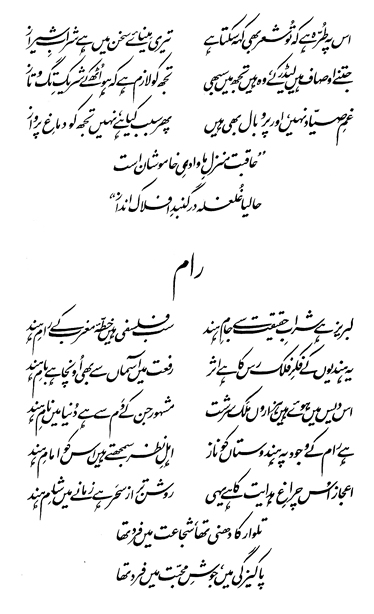 اس پہ طرّہ ہے کہ تُو شعر بھی کہہ سکتا ہے تیری مینائے سخن میں ہے شرابِ شیراز
جتنے اوصاف ہیں لیڈر کے، وہ ہیں تجھ میں سبھی تجھ کو لازم ہے کہ ہو اُٹھ کے شریکِ تگ و تاز
غمِ صیّاد نہیں، اور پر و بال بھی ہیں پھر سبب کیا ہے، نہیں تجھ کو دماغِ پرواز
”عاقبت منزلِ ما وادیِ خاموشان است
حالیا غُلغلہ در گنبدِ افلاک انداز“
رام
لبریز ہے شرابِ حقیقت سے جامِ ہند سب فلسفی ہیں خطّۂ مغرب کے رامِ ہند
یہ ہندیوں کے فکرِ فلک رس کا ہے اثر رفعت میں آسماں سے بھی اونچا ہے بامِ ہند
اس دیس میں ہوئے ہیں ہزاروں ملَک سرشت مشہور جن کے دم سے ہے دُنیا میں نامِ ہند
ہے رام کے وجود پہ ہندوستاں کو ناز اہلِ نظر سمجھتے ہیں اس کو امامِ ہند
اعجاز اس چراغِ ہدایت کا ہے یہی روشن تر از سحَر ہے زمانے میں شامِ ہند
تلوار کا دھنی تھا، شجاعت میں فرد تھا
پاکیزگی میں، جوشِ محبّت میں فرد تھا